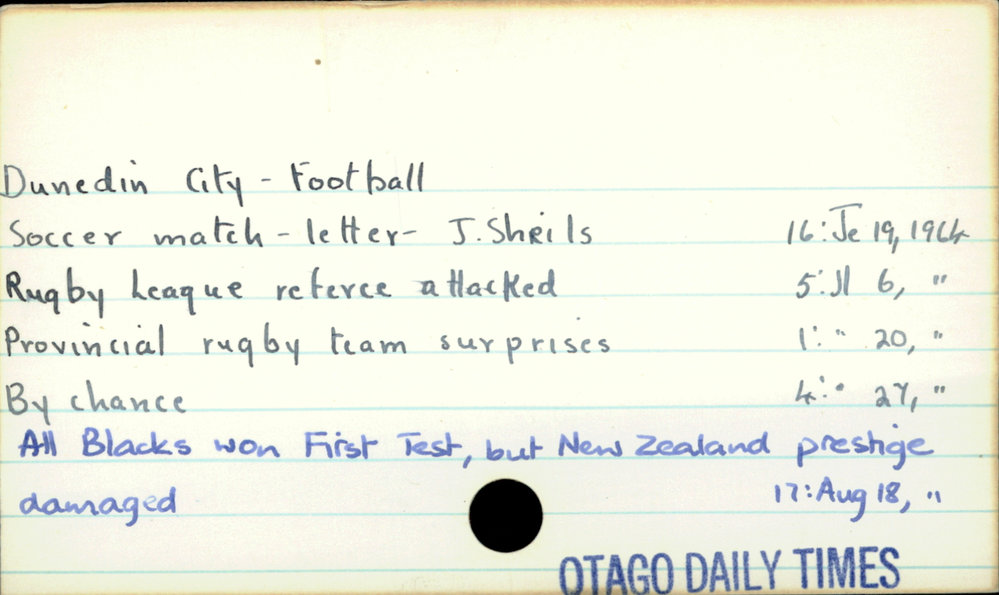 Dunedin City - Football
Soccer match - letter - J. Sheils 16: Je 19, 1964
Rugby League referee attacked 5: Jl 6, "
Provincial rugby team surprises 1: " 20, "
By chance 4: " 27, "
All Blacks won First Test, but New Zealand prestige
damaged 17: Aug 18, "
OTAGO DAILY TIMES